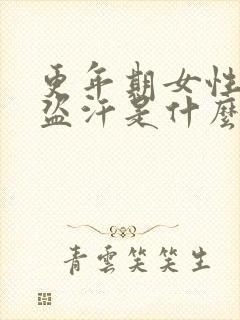 更年期女性
盜汗是什麼
青雲笑笑生